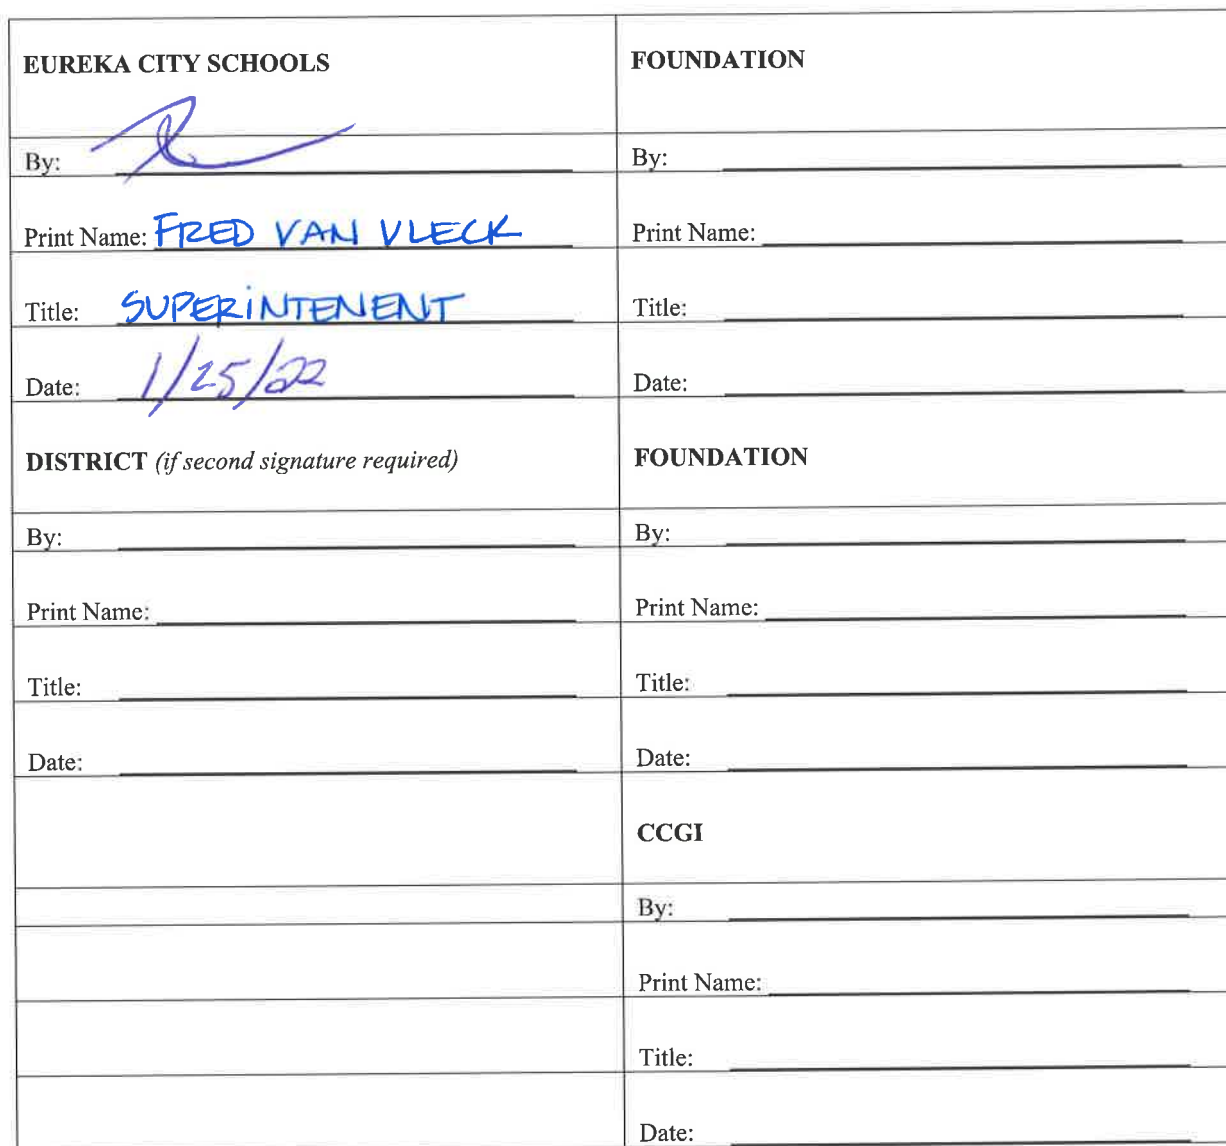 EUREKA CITY SCHOOLS
FOUNDATION
By:
By:
Print Name: FRED VAN VLECK
Print Name:
Title: SUPERINTENENT
Title:
Date: 1/25/22
Date:
DISTRICT (if second signature required)
FOUNDATION
By:
By:
Print Name:
Print Name:
Title:
Title:
Date:
Date:
CCGI
By:
Print Name:
Title:
Date: